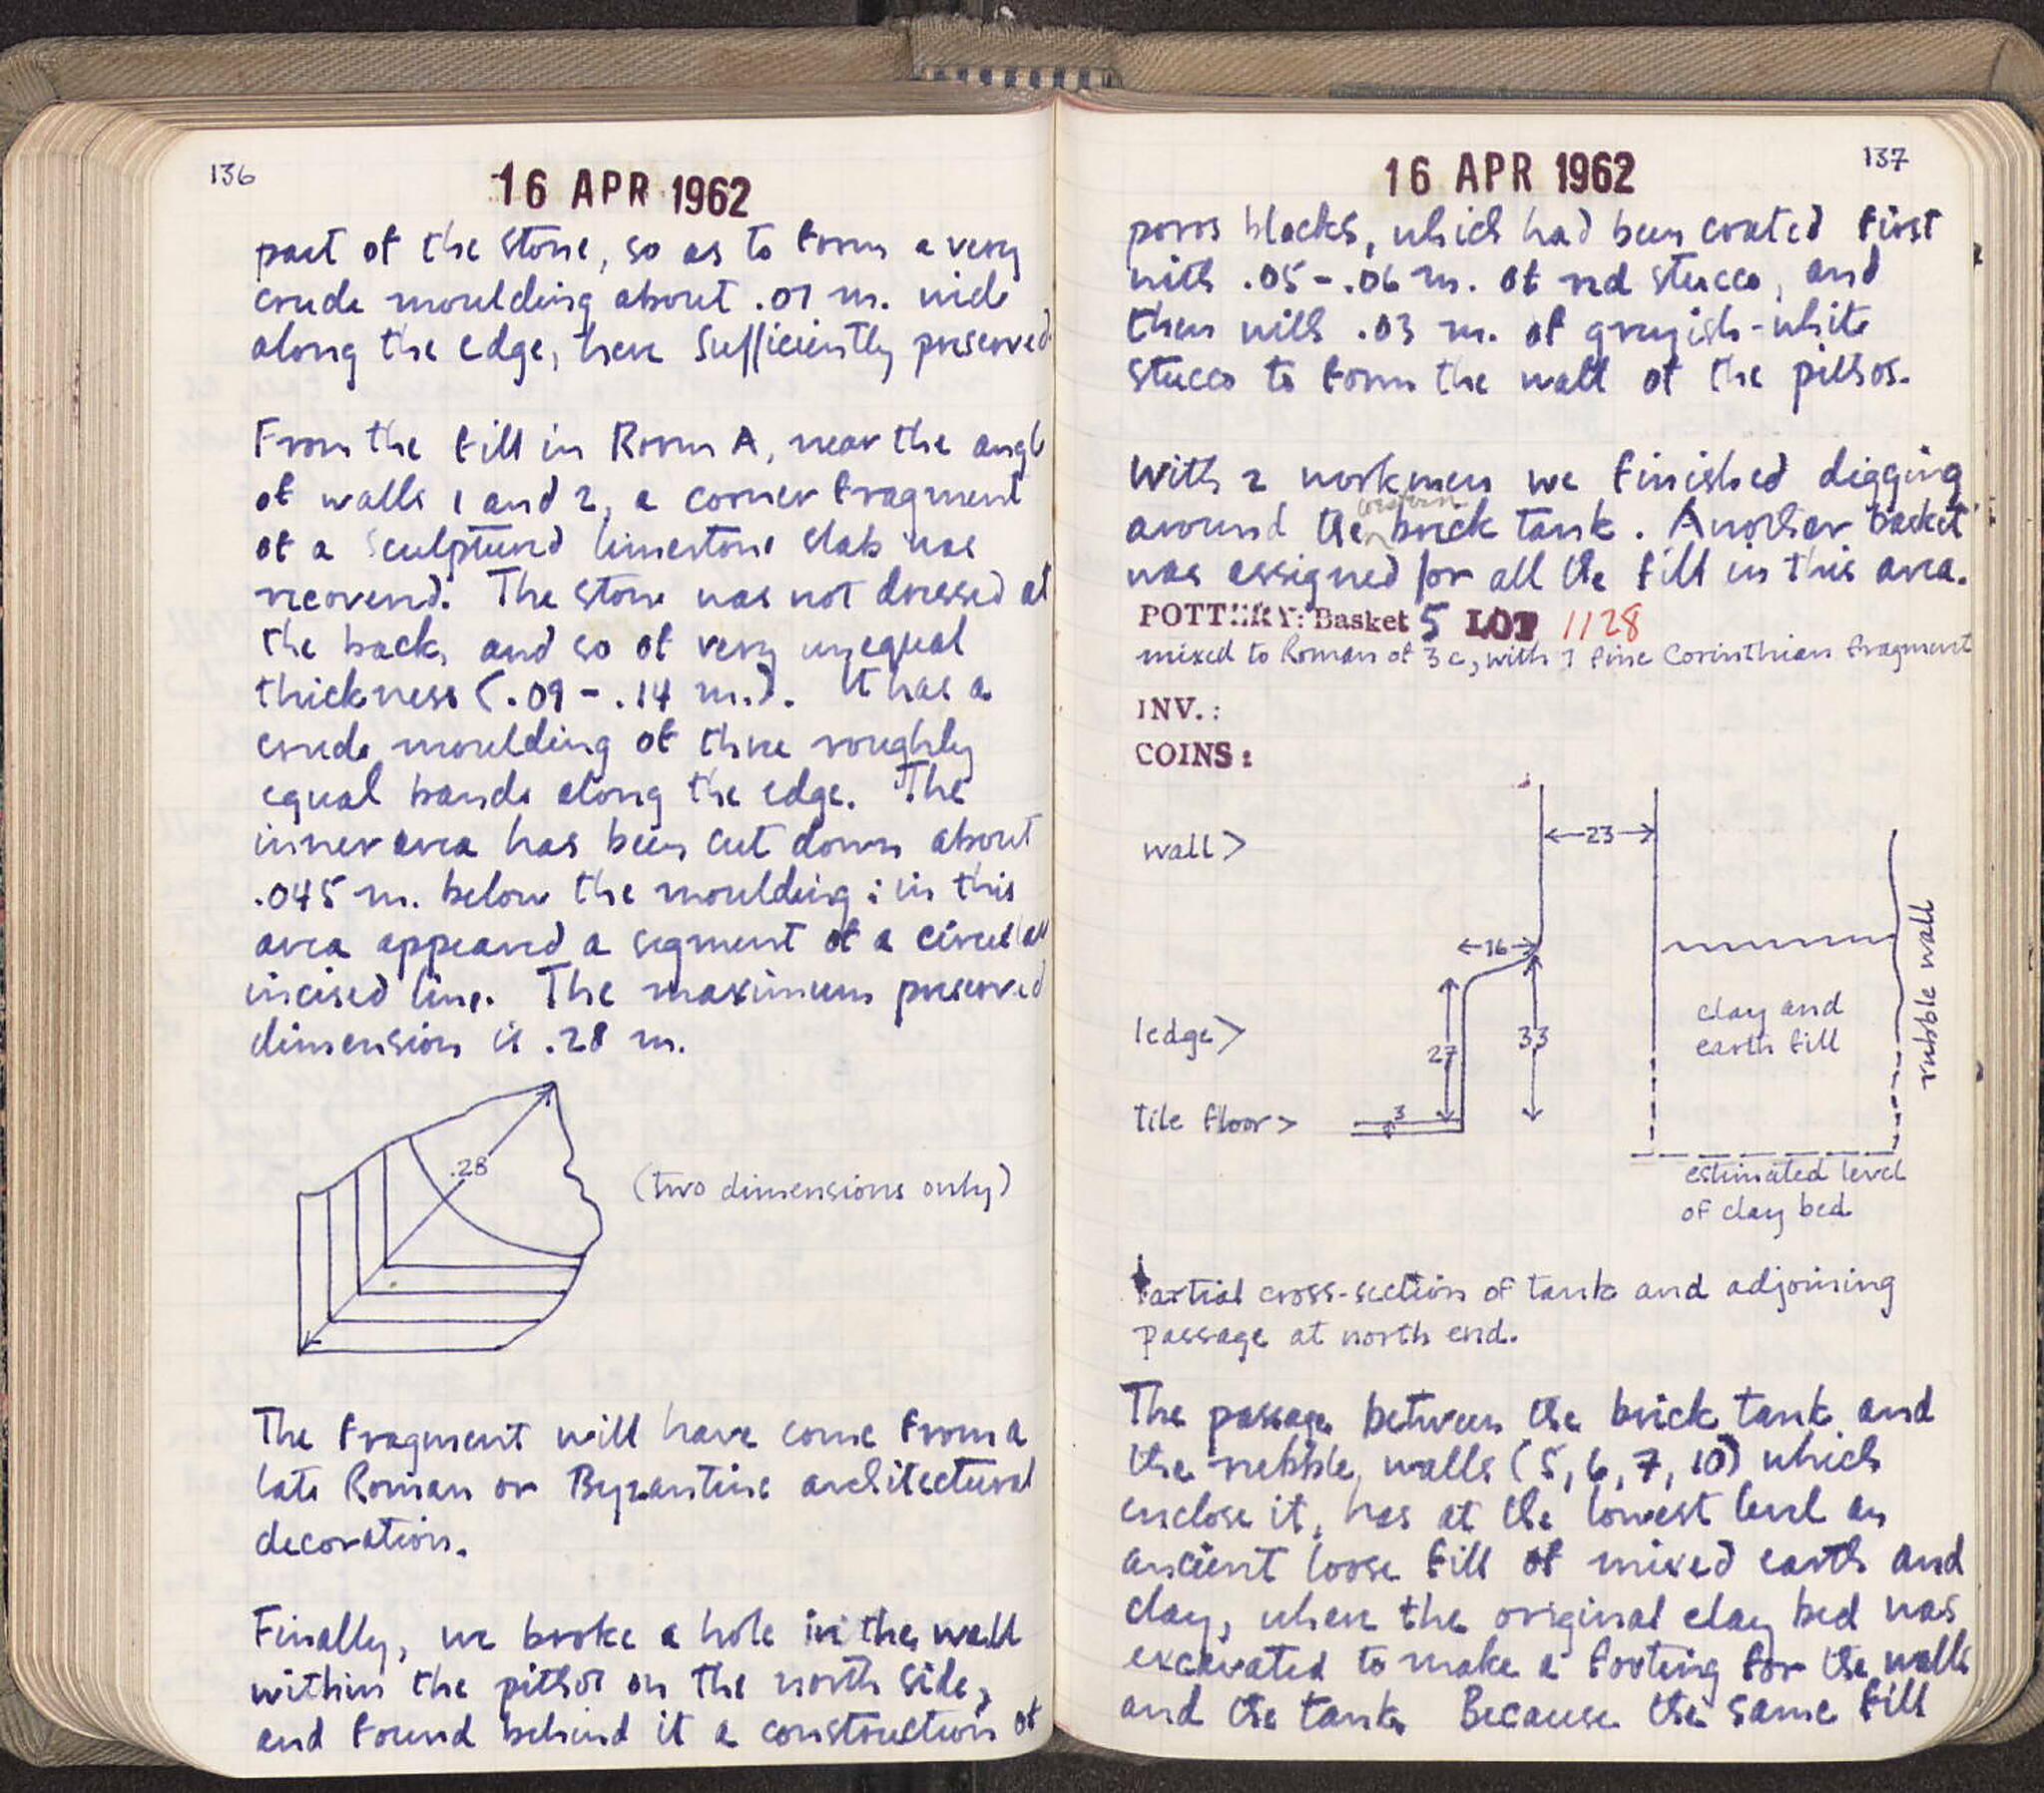 136
16 APR 1962
part of the stone, so as to form a very
crude moulding about .07 m. wide
along the edge, here sufficiently preserved
From the fill in Room A, near the angl
of walls 1 and 2, a corner fragment
of a sculptured limestone slab was
recovered. The stone was not dressed at
the back, and so of very unequal
thickness (.09 - .14 m.). It has a
crude moulding of three roughly
equal bands along the edge. The
inner area has been cut down about
.045 m. below the moulding : in this
area appeared a segment of a circular
incised line. The maximum preserved
dimension is .28 m.
.28
(two dimensions only)
The fragment will have come from a
late Roman or Byzantine architectural
decoration.
Finally, we broke a hole in the wall
within the pithos on the north side,
and found behind it a construction of
137
16 APR 1962
poros blocks, which had been coated first
with .05 - .06 m. of red stucco, and
then with .03 m. of grayish-white
stucco to form the wall of the pithos.
With 2 workmen we finished digging
western
around the brick tank. Another basket
was assigned for all the fill in this area.
POTTERY: Basket 5 LOT 1128
mixed to Roman of 3 c, with 1 fine Corinthian fragment
INV.:
COINS:
wall >
23
16
ledge >
27
33
clay and
earth fill
rubble wall
tile floor >
3
estimated level
of clay bed
Partial cross-section of tank and adjoining
passage at north end.
The passage between the brick tank and
the rubble walls (5, 6, 7, 10) which
enclose it, has at the lowest level an
ancient loose fill of mixed earth and
clay, where the original clay bed was
excavated to make a footing for the walls
and the tank. Because the same fill